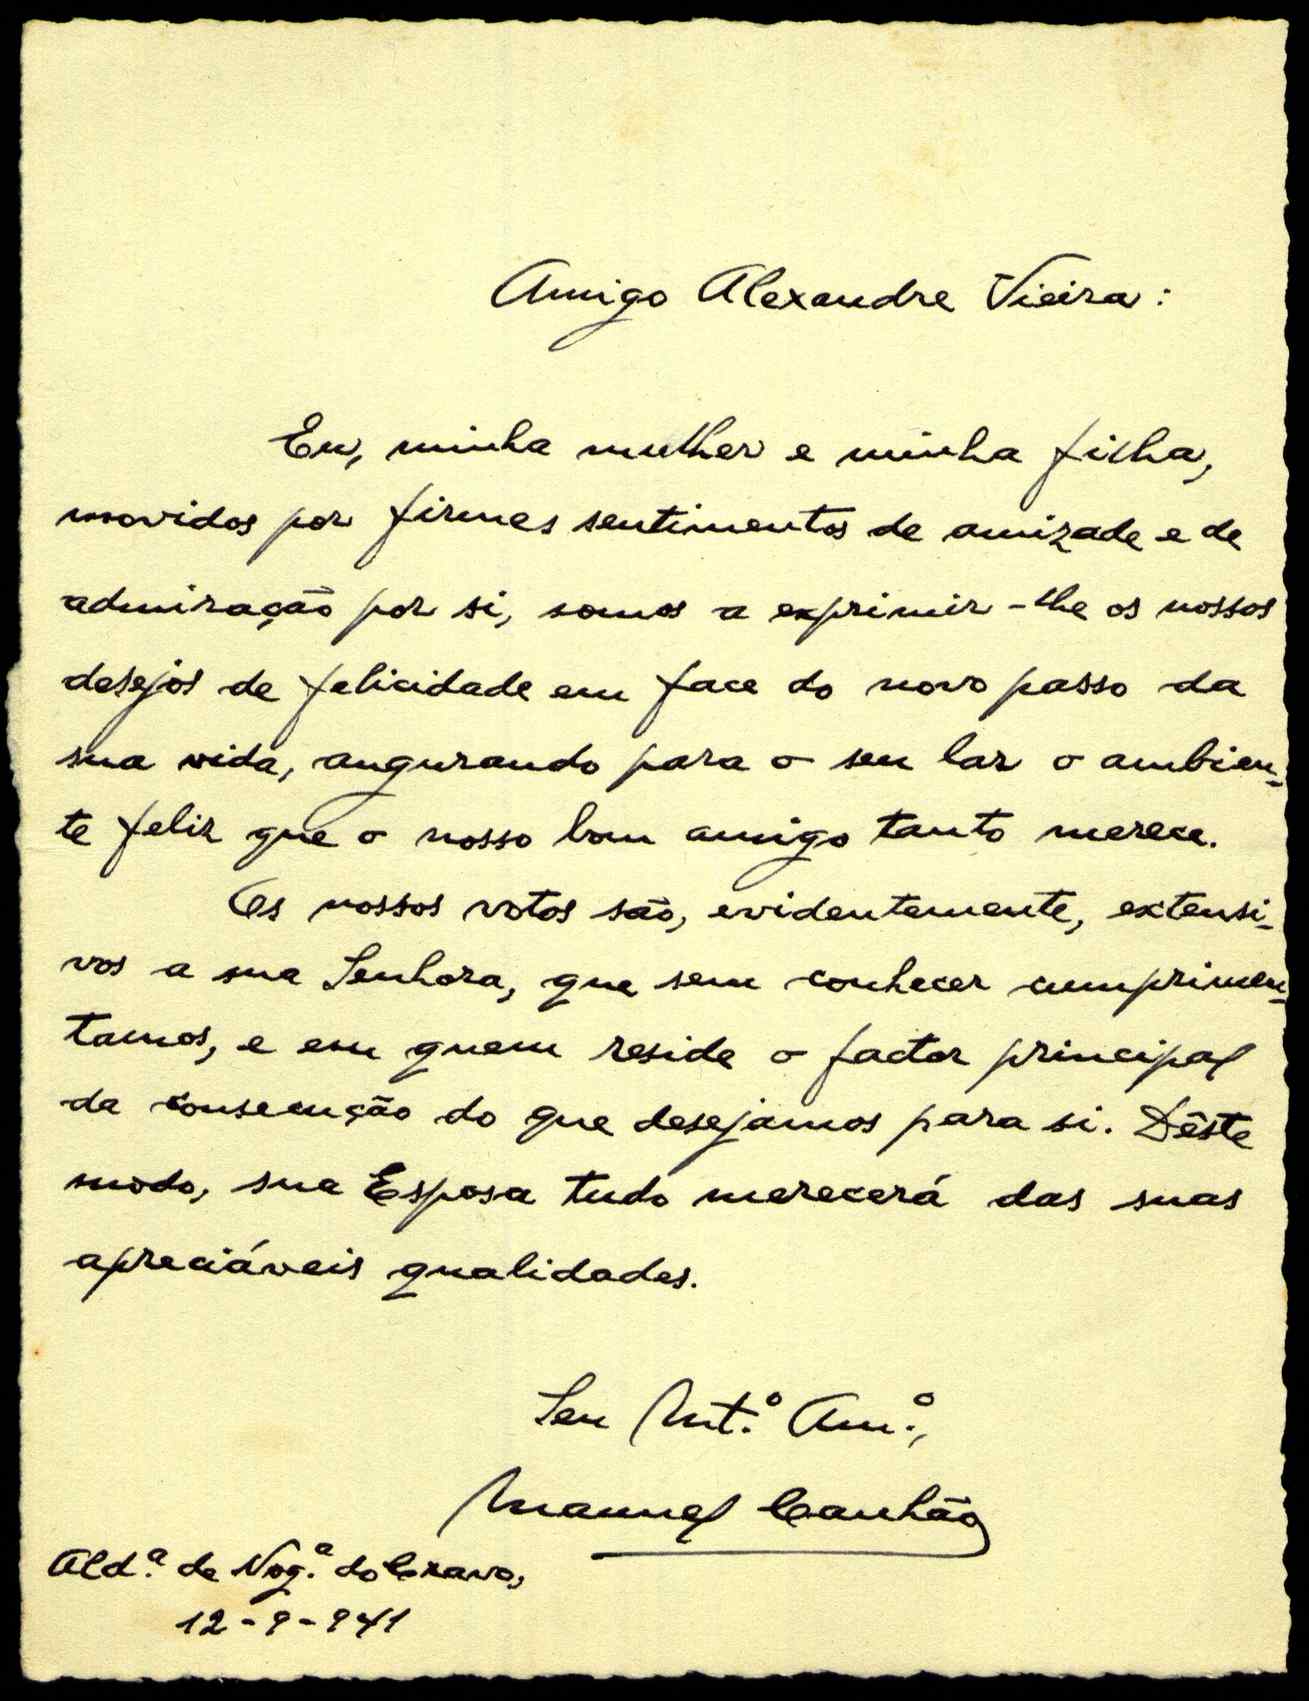 Amigo Alexandre Vieira:
Eu, minha mulher e minha filha,
movidos por firmes sentimentos de amizade e de
admiração por si, somos a exprimir-lhe os nossos
desejos de felicidade em face do novo passo da
sua vida, augurando para o seu lar o ambien-
te feliz que o nosso bom amigo tanto merece.
Os nossos votos são, evidentemente, extensi-
vos a sua Senhora, que sem conhecer cumprimen-
tamos, e em quem reside o factor principal
da consecução do que desejamos para si. Dêste
modo, sua Esposa tudo merecerá das suas
apreciáveis qualidades.
Seu Mt.º Am.º,
Manuel Canhão
Ald.ª de Nog.ª do Cravo,
12-9-941